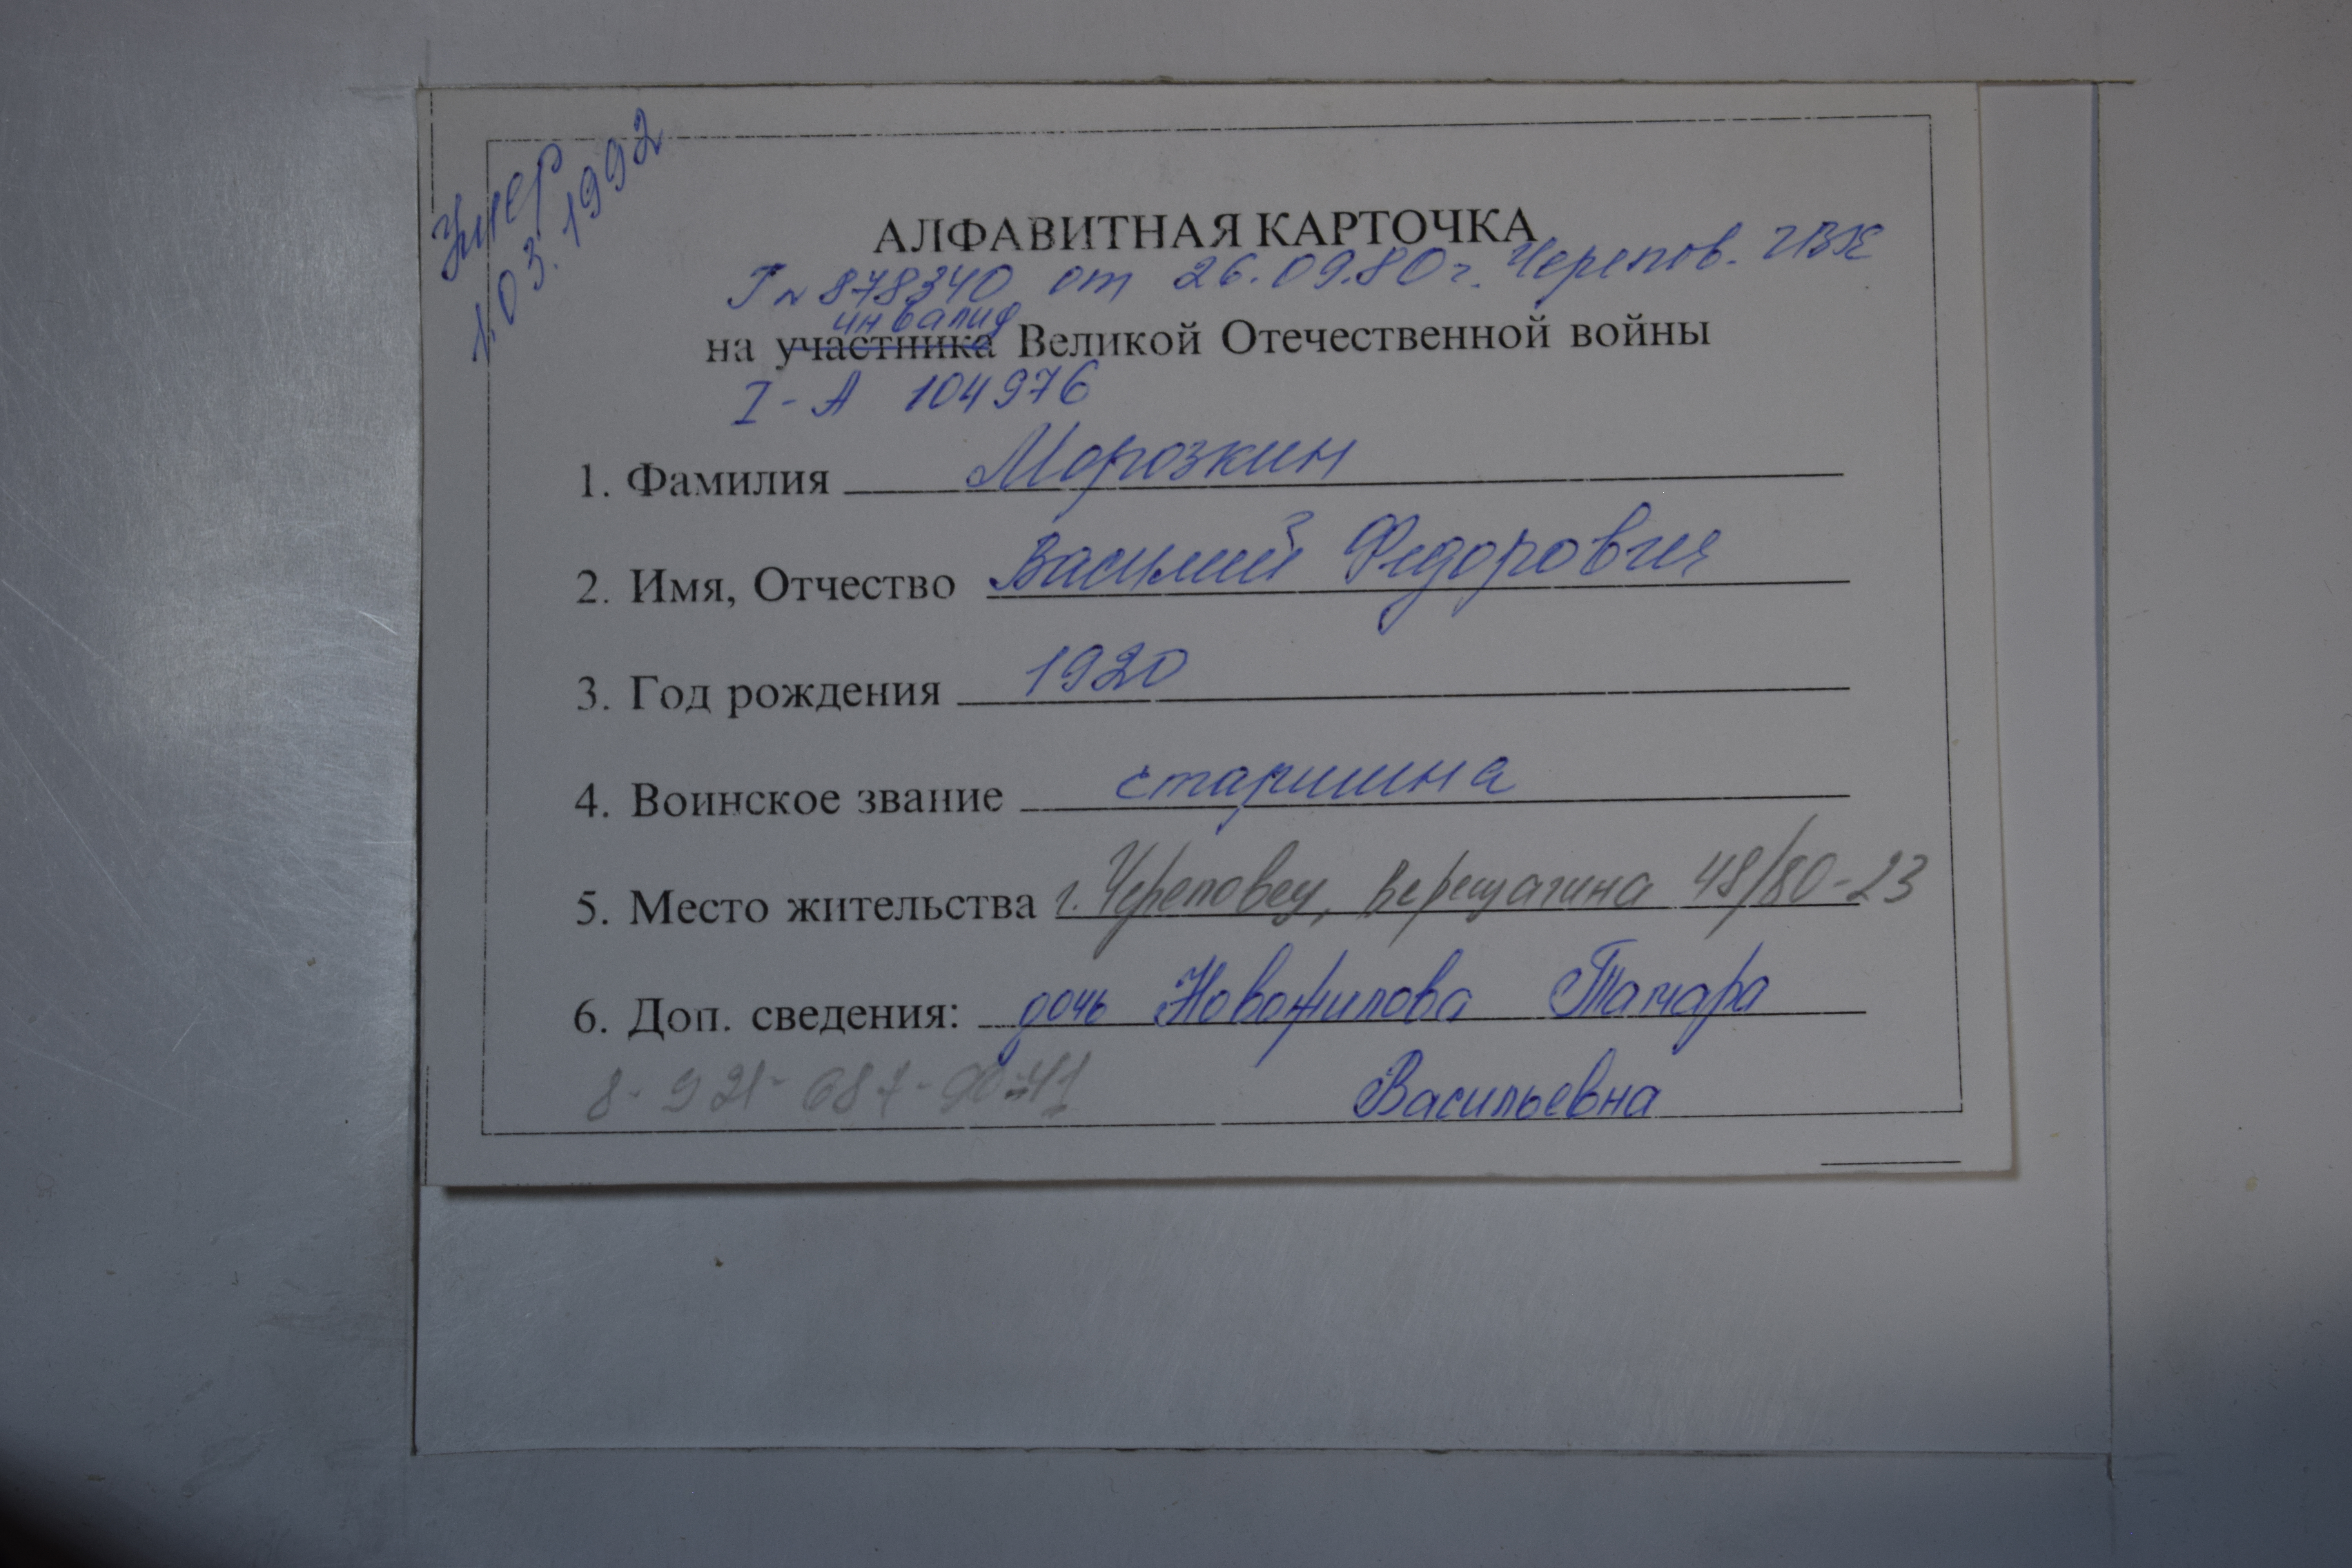 Умер
1.03.1992
АЛФАВИТНАЯ КАРТОЧКА
Г № 878340 от 26.09.80г. Черепов. ГВК
инвалид
на участника Великой Отечественной войны
I-А 104976
1. Фамилия Морозкин
2. Имя, Отчество Василий Федорович
3. Год рождения 1920
4. Воинское звание старшина
5. Место жительства г. Череповец, Верещагина 48/80-23
6. Доп. сведения: дочь Новожилова Тамара
8-921-687- Васильевна